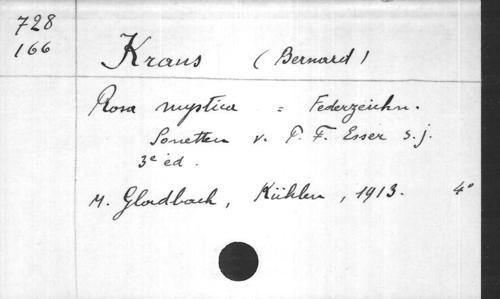 728
166
Kraus (Bernard)
Rosa mystica = Federzeichn.
Sonetten v. P. F. Esser S. j.
3e éd.
M. Gladbach, Kühlen, 1913. 4°